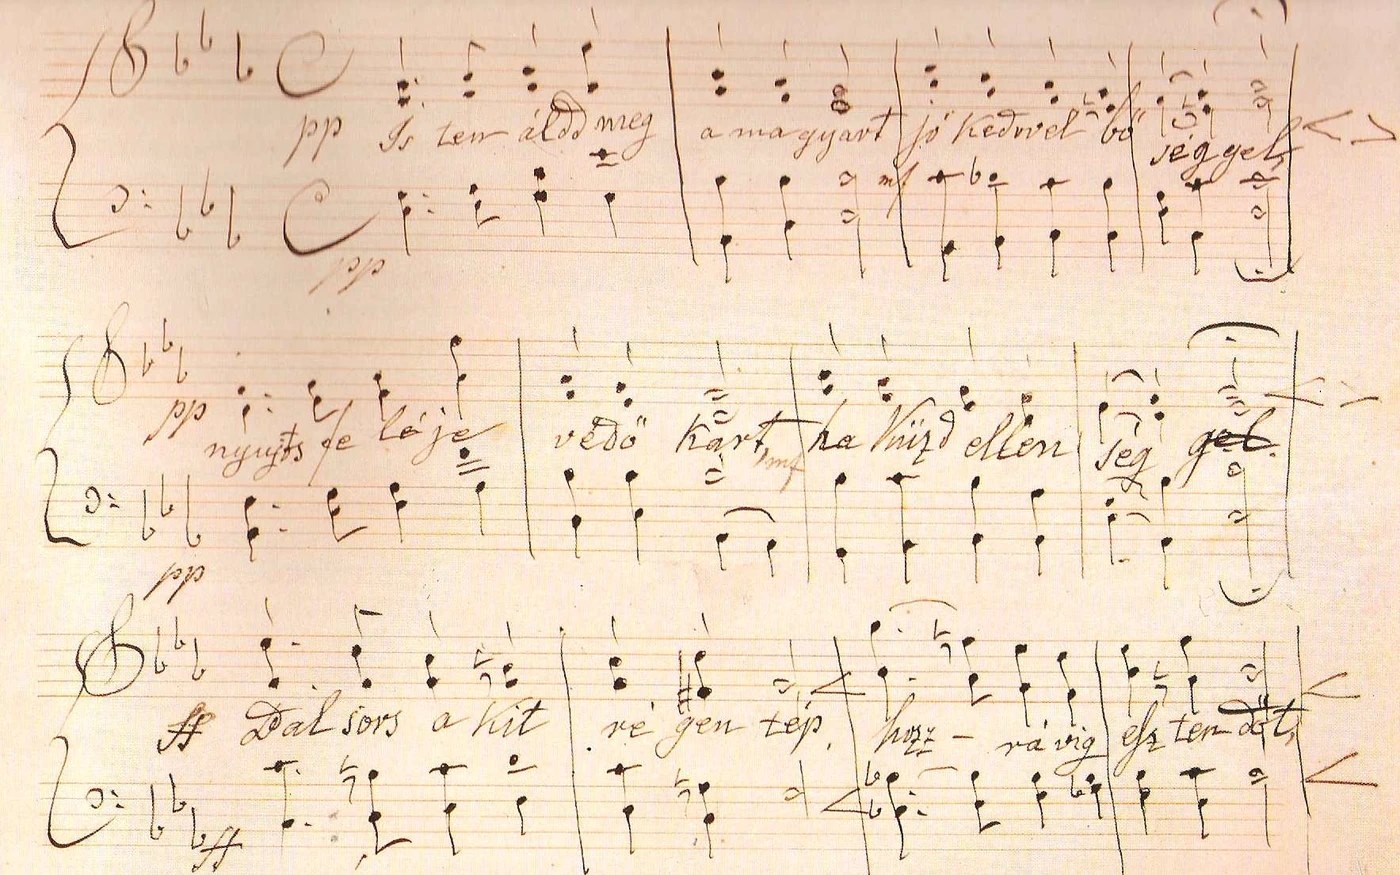 pp Is ten áldd meg a magyart jó kedvvel bő séggel,
mf
pp
pp nyujts fe léje védő kart, ha Küzd ellen ség gel.
mf
pp
ff Bal sors a Kit ré gen tép, hozz - rá víg esz ten dőt,
ff